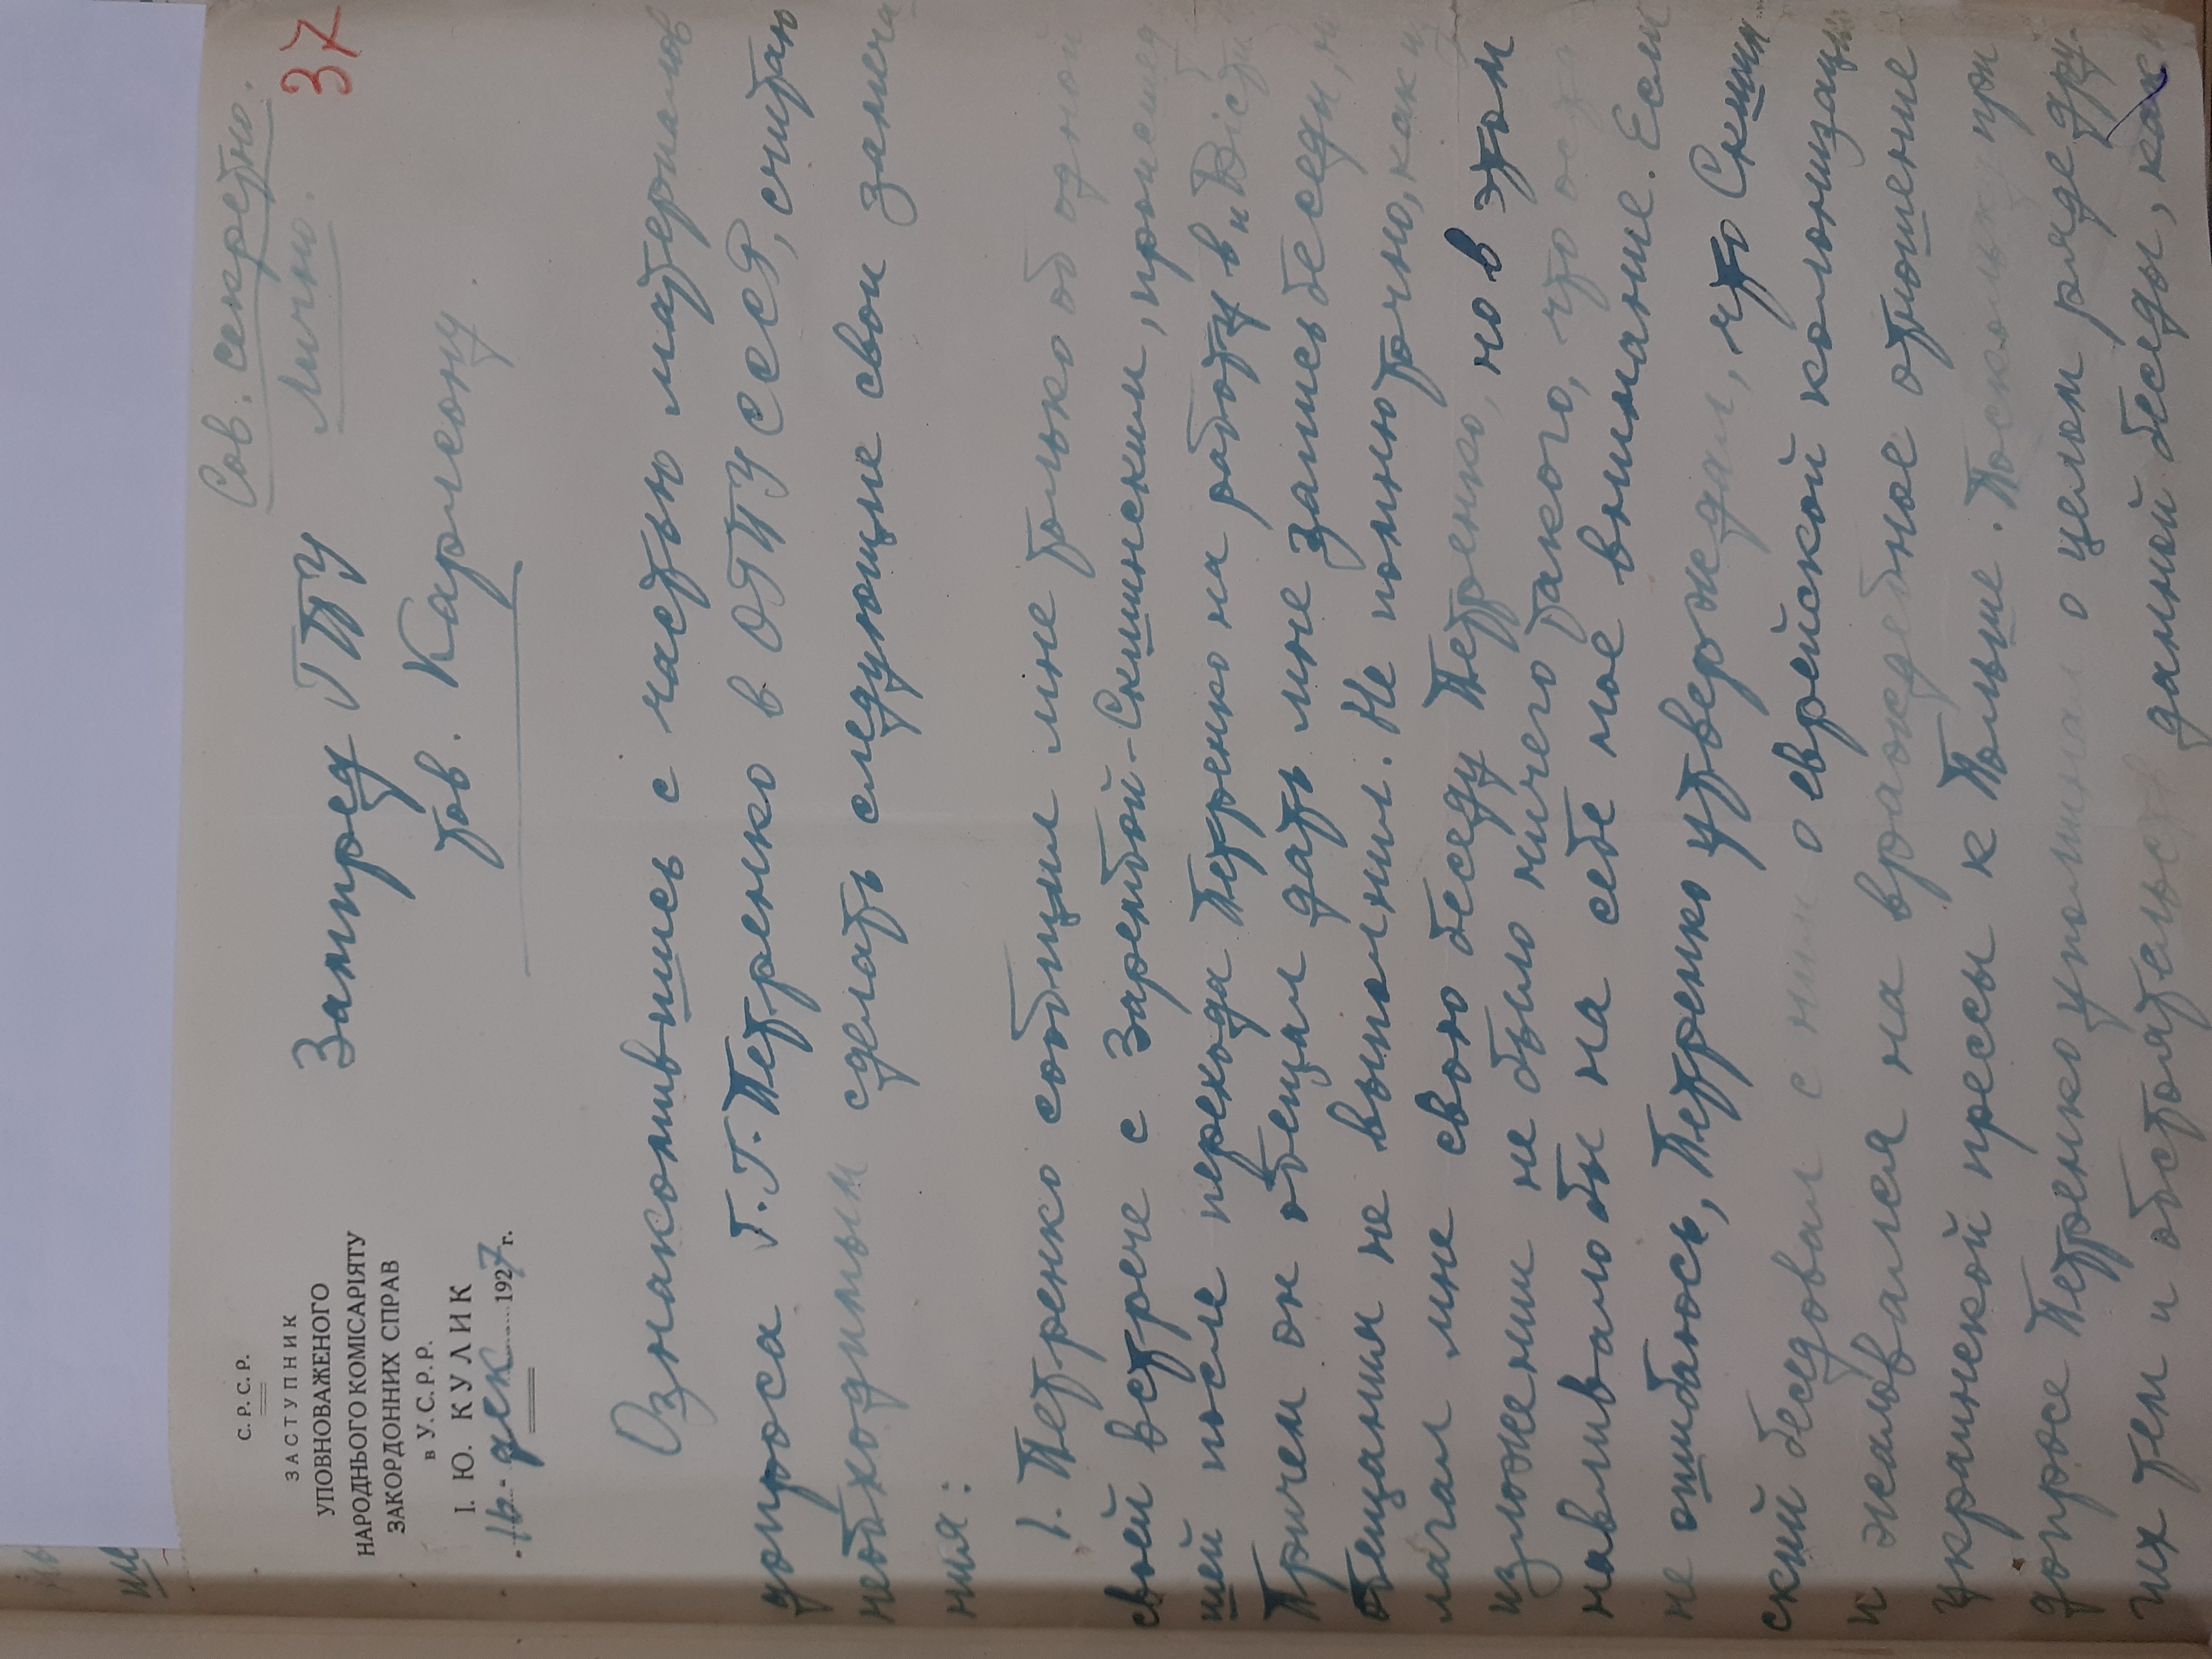 Сов. секретно.
Лично.
37
С. Р. С. Р.
ЗАСТУПНИК
УПОВНОВАЖЕНОГО
НАРОДНЬОГО КОМІСАРІЯТУ
ЗАКОРДОННИХ СПРАВ
в У. С. Р. Р.
І. Ю. КУЛИК
16 дек 1927 г.
Зампред ГПУ
тов. Карлсону.
Ознакомившись с частью материалов
допроса т. Г. Петренко в ОГПУ СССР, считаю
необходимым сделать следующие свои замеча
ния:
1. Петренко сообщил мне только об одной
своей встрече с Зарембой-Скшинским, происшед
шей после перехода Петренко на работу в „Вісти
Причем он обещал дать мне запись беседы, н
обещания не выполнил. Не помню точно, как и
лагал мне свою беседу Петренко, но в этом
изложении не было ничего такого, что ост
навливало бы на себе мое внимание. Если
не ошибаюсь, Петренко утверждал, что Скшин
ский беседовал с ним о еврейской колонизации
и жаловался на враждебное отношение
украинской прессы к Польше. Поскольку при
допросе Петренко упоминал о целом ряде дру-
гих тем и обстоятельств данной беседы, как